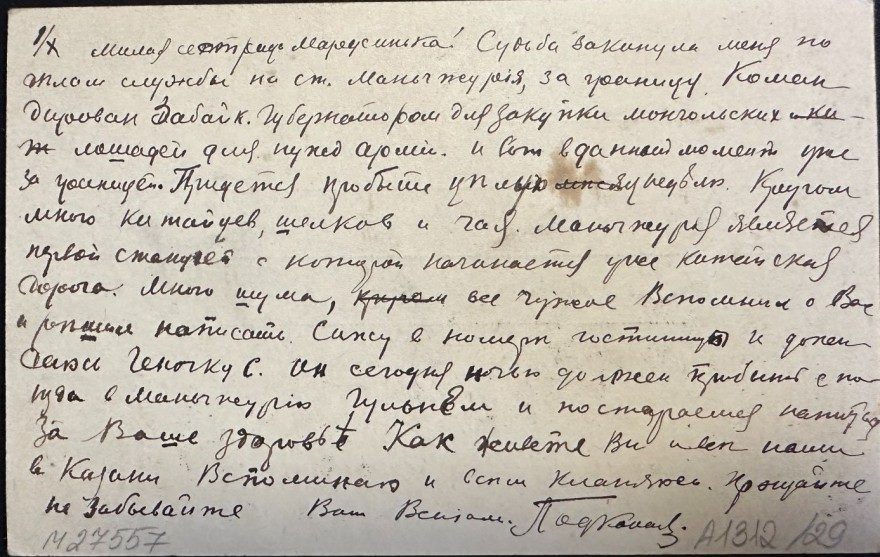 1/X Милая сестрица Марусинька! Судьба закинула меня по
делам службы на ст. Маньчжурія, за границу. Коман
дирован Забайк. Губернатором для закупки монгольских
лошадей для нужд арміи. и вот в данный момент уже
за границей. Придется пробыть целую недѣлю. Кругом
много китайцев, шелков и чая. Маньчжурия является
первой станціей с которой начинается уже китайская
дорога. Много шума, все чужое Вспомнил о Вас
и рѣшил написать. Сижу в номере гостиницы и
Геночку С. Он сегодня ночью должен прибыть с по
ѣзда в Маньчжурію Гульнем и постараемся
За Ваше здоровье Как живете Вы и все наши
в Казани Вспоминаю и всем кланяюсь. Прощайте
не забывайте Ваш
М27557 А1312/29